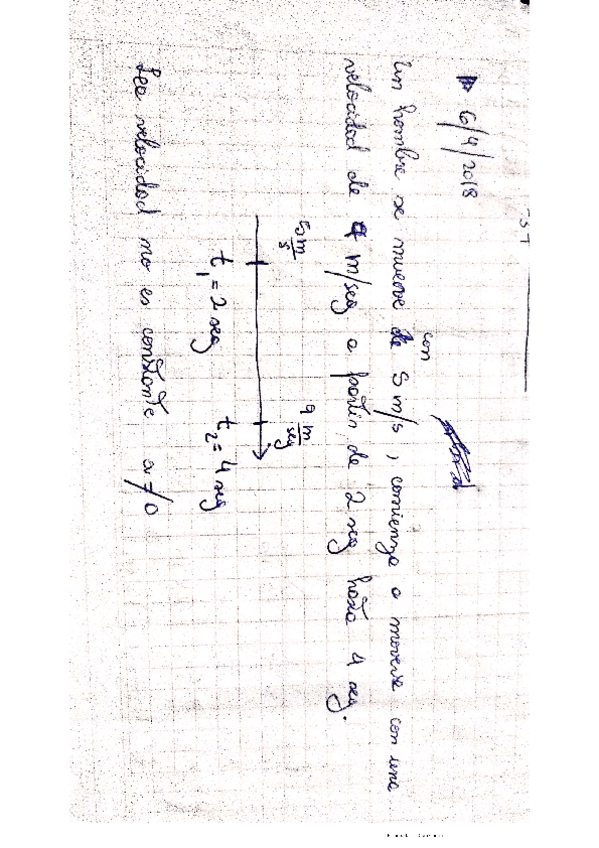 6/4/2018
con
Un hombre se mueve de 5 m/s, comienza a moverse con una
velocidad de 9 m/seg a partir de 2 seg hasta 4 seg.
5 m/s 9 m/seg
t1 = 2 seg t2 = 4 seg
Lea velocidad no es constante a ≠ 0